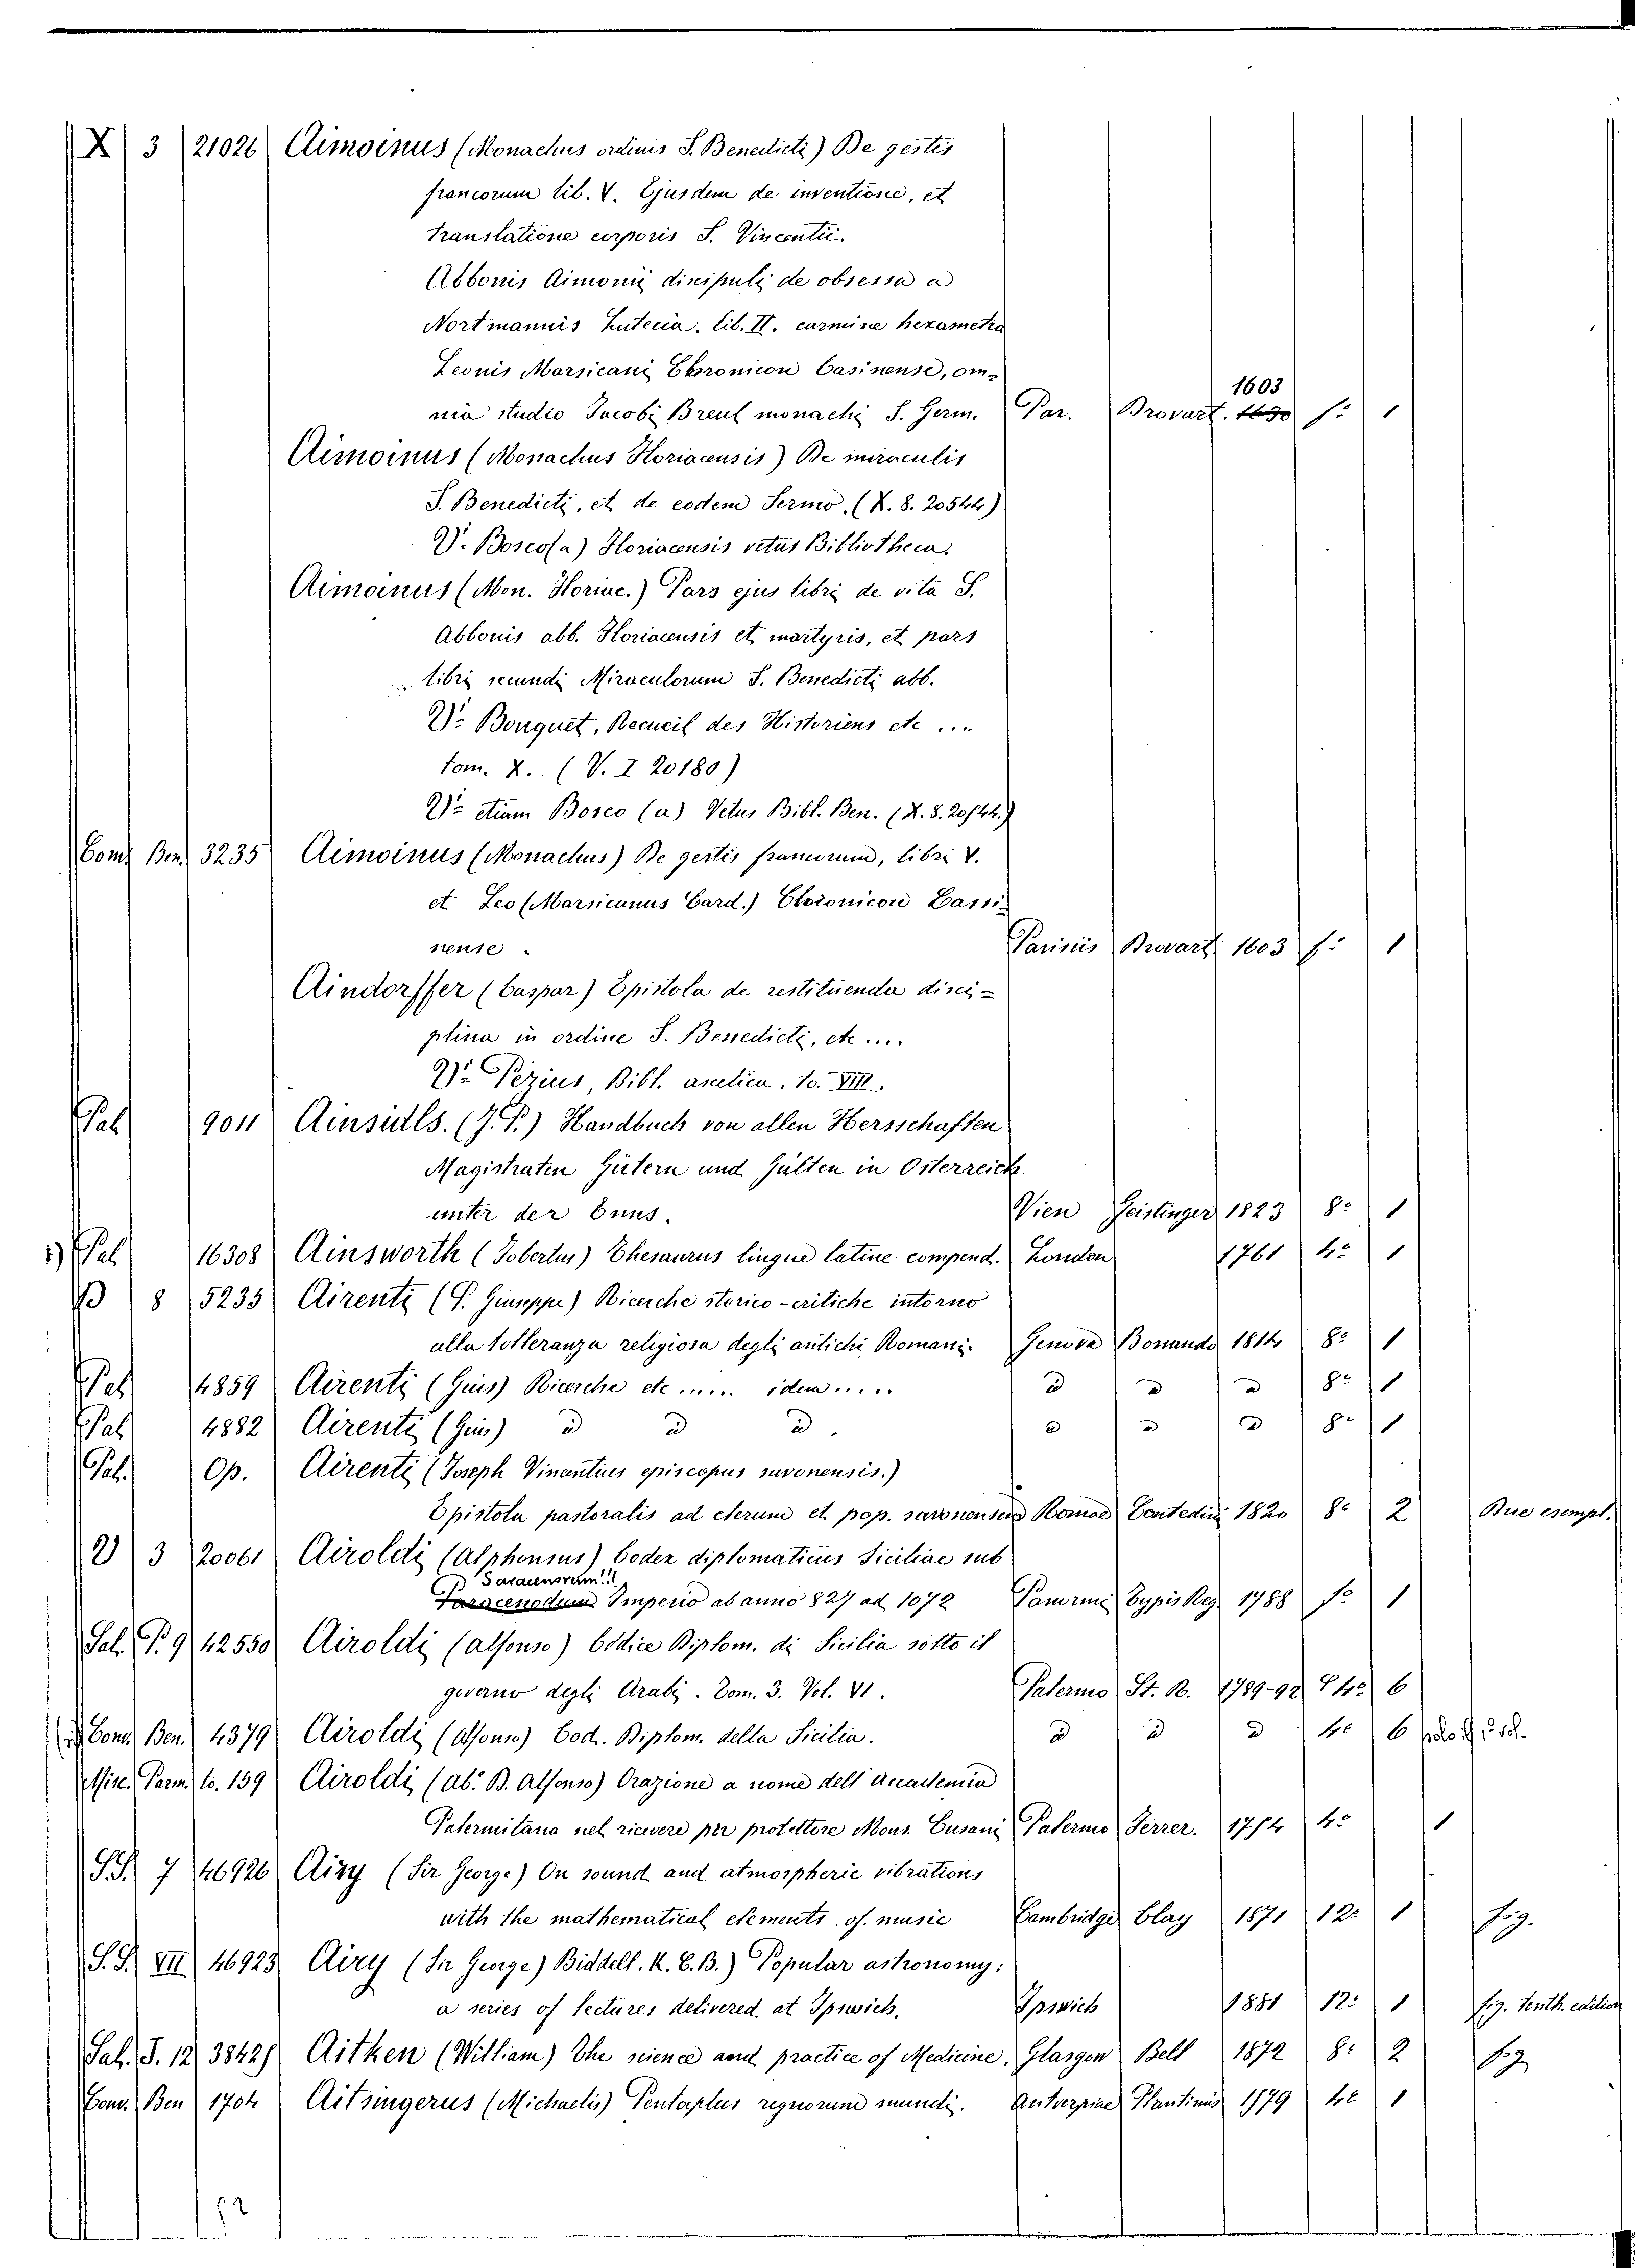 X 3 21026 Aimoinus (Monachus ordinis S. Benedicti) De gestis
francorum lib. V. Ejusdem de inventione, et
translatione corporis S. Vincentii.
Abbonis Aimonii discipuli de obsessa a
Nortmannis Lutecia. lib. II. carmine hexametra
Leonis Marsicani Chronicon Casinense, om-
nia studio Jacobi Breul monachi S. Germ. Par. Drovart. 1603 f.º 1
Aimoinus (Monachus Floriacensis) De miraculis
S. Benedicti, et de eodem Sermo. (X. 8. 20544)
V. Bosco (a) Floriacensis vetus Bibliotheca.
Aimoinus (Mon. Floriac.) Pars ejus libri de vita S.
Abbonis abb. Floriacensis et martyris, et pars
libri secundi Miraculorum S. Benedicti abb.
V. Bouquet, Recueil des Historiens etc ...
tom. X.. (V. I 20180)
V. etiam Bosco (a) Vetus Bibl. Ben. (X. 8. 20544.)
Com. Ben. 3235 Aimoinus (Monachus) De gestis francorum, libri V.
et Leo (Marsicanus Card.) Chronicon Cassi-
nense. Parisiis Drovart. 1603 f.º 1
Aindorffer (Caspar) Epistola de restituenda disci-
plina in ordine S. Benedicti, etc ....
V. Pezius, Bibl. ascetica. to. VIII.
Pal. 9011 Ainsidls. (J. P.) Handbuch von allen Herrschaften
Magistraten Gütern und Gülten in Osterreich
unter der Enns. Vien Geistinger 1823 8º 1
Pal 16308 Ainsworth (Robertus) Thesaurus lingue latine compend. London 1761 4º 1
B 8 5235 Airenti (P. Giuseppe) Ricerche storico-critiche intorno
alla tolleranza religiosa degli antichi Romani. Genova Bonaudo 1814 8º 1
Pal 4859 Airenti (Gius) Ricerche etc ..... idem ..... d d d 8º 1
Pal 4882 Airenti (Gius) d d d. d d d 8º 1
Pal. Op. Airenti (Joseph Vinantius episcopus savonensis.)
Epistola pastoralis ad clerum et pop. savonensem Romae Contedini 1820 8º 2 Due esempl.
V 3 20061 Airoldi (Alphonsus) Codex diplomaticus Siciliae sub
Saracenorum!!
Imperio ab anno 827 ad 1072 Panormi Typis Reg. 1788 fº 1
Sal. P. 9 42550 Airoldi (Alfonso) Codice Diplom. di Sicilia sotto il
governo degli Arabi. Tom. 3. Vol. VI. Palermo St. R. 1789-92 4º 6
Com. Ben. 4379 Airoldi (Alfonso) Cod. Diplom. della Sicilia. d d d 4º 6
Misc. Parm. to. 159 Airoldi (ab. D. Alfonso) Orazione a nome dell'Accademia
Palermitana nel ricevere per protettore Mons. Cusani Palermo Ferrer. 1754 4º 1
S.S. 7 46926 Airy (Sir George) On sound and atmospheric vibrations
with the mathematical elements of music Cambridge Clay 1871 12º 1 fig.
S.S. VII 46923 Airy (Sir George) Biddell. K. C. B.) Popular astronomy:
a series of lectures delivered at Ipswich. Ipswich 1881 12º 1 fig. tenth. edition
Sal. S. 12 38429 Aitken (William) The science and practice of Medicine. Glasgow Bell 1872 8º 2 fig
Com. Ben 1704 Aitsingerus (Michaelis) Pentaplus regnorum mundi. Antverpiae Plantinus 1579 4º 1